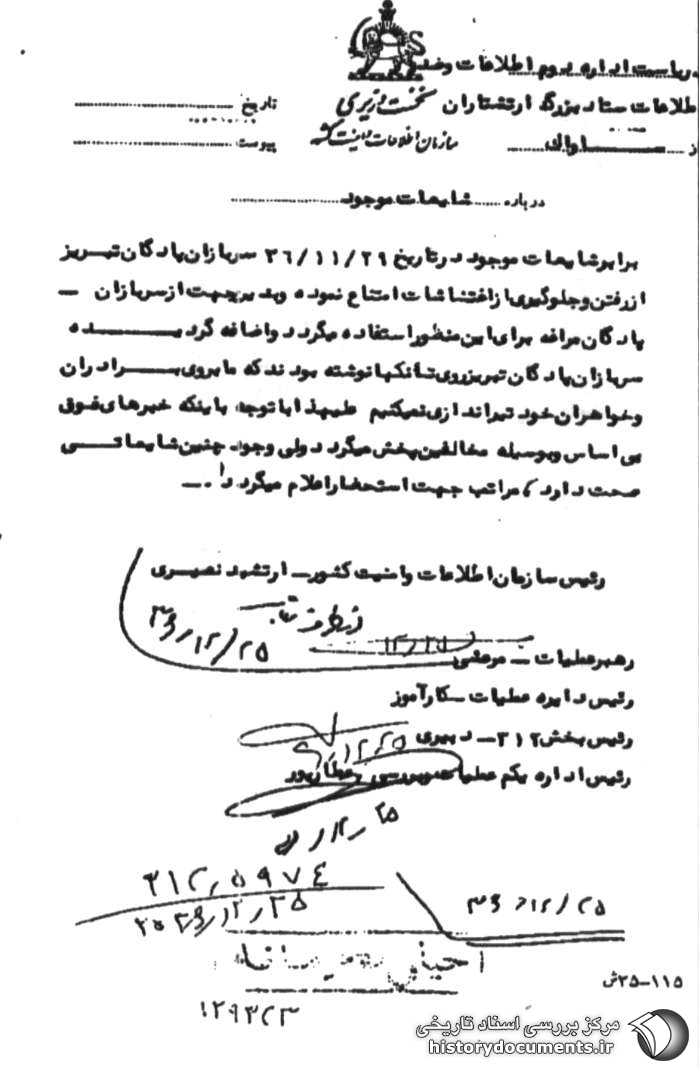 ریاست اداره دوم اطلاعات وضد
اطلاعات ستاد بزرگ ارتشتاران
نخست وزیری
سازمان اطلاعات و امنیت کشور
ساواك
تاریخ
پیوست
درباره شایعات موجود
برابر شایعات موجود در تاریخ ۳۶/۱۱/۲۹ سربازان پادگان تبریز
از رفتن و جلوگیری از اغتشاشات امتناع نموده و بدیر جهت از سربازان –
پادگان مراغه برای این منظور استفاده میگردد و اضافه گردیده
سربازان پادگان تبریز روی تانکها نوشته بودند که ما بروی برادران
و خواهران خود تیراندازی نمیکنیم علیهذا با توجه باینکه خبرهای فوق
بی اساس و بوسیله مخالفین پخش میگردد ولی وجود چنین شایعاتی
صحت دارد، مراتب جهت استحضار اعلام میگردد.
رئیس سازمان اطلاعات و امنیت کشور – ارتشبد نصیری
از طرف
۳۶/۱۲/۲۵
۱۲/۲۵
رهبر عملیات – مرعشی
رئیس دایره عملیات – کارآموز
رئیس بخش ۳۱۲ – دبیری
۱۲/۲۵
رئیس اداره یکم عملیات و بررسی عطارپور
۱۲/۲۵
۳۱۲/۵۹۷۴
۳۶/۱۲/۲۵
۳۶/۱۲/۲۵
۱۱۵–۳۵ش
مرکز بررسی اسناد تاریخی
historydocuments.ir